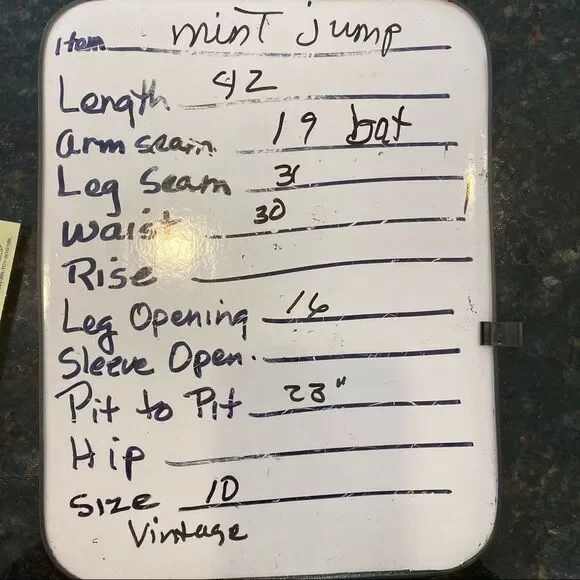 Item mint jump
Length 42
arm seam 19 bat
Leg Seam 31
Waist 30
Rise
Leg Opening 16
Sleeve Open.
Pit to Pit 23"
Hip
SIZE 10
Vintage